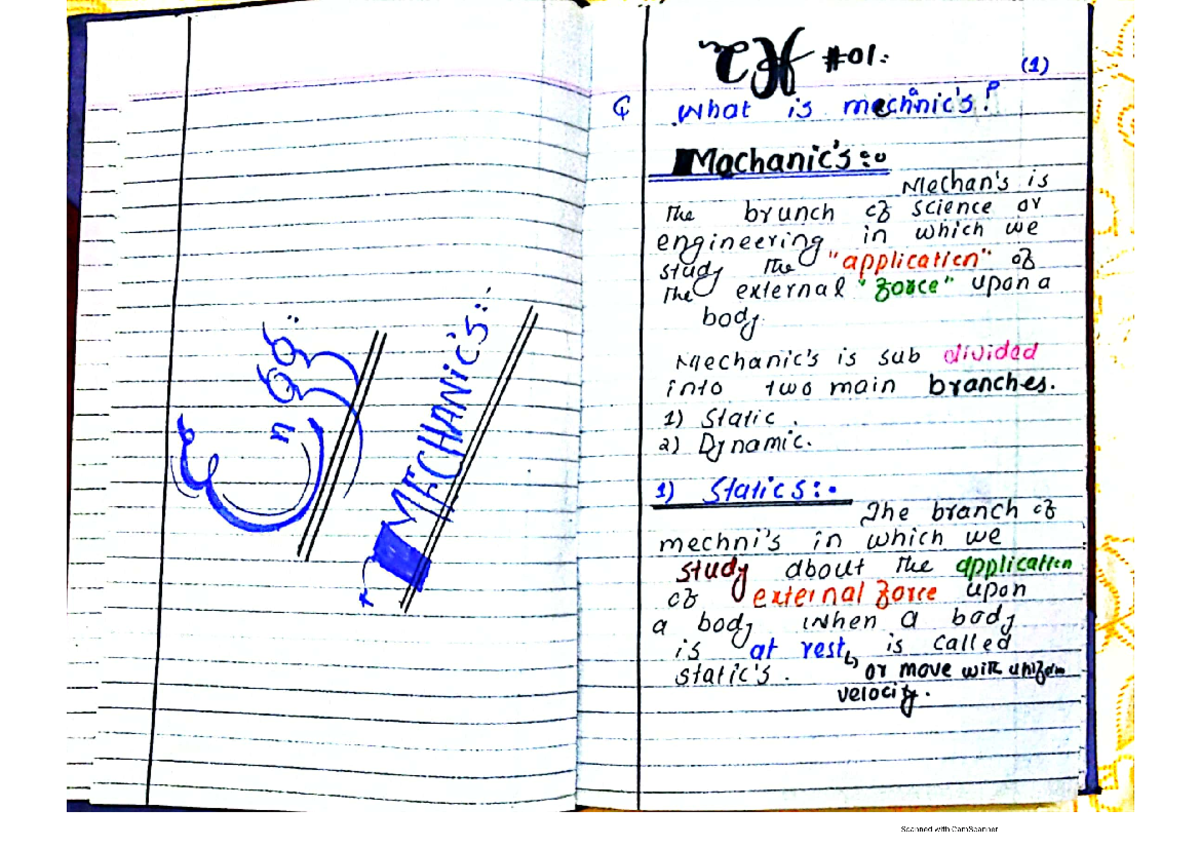 Engg:
MECHANIC'S:-
CH #01:
(1)
Q What is mechanic's?
Mechanic's:-
Mechan's is
the brunch of science or
engineering in which we
study the "application" of
the external "force" upon a
body.
Mechanic's is sub divided
into two main branches.
1) Static.
2) Dynamic.
1) Statics:-
The branch of
mechni's in which we
study about the application
of external force upon
a body when a body
is at rest, is called
static's. or move with unifom
velocity.
Scanned with CamScanner